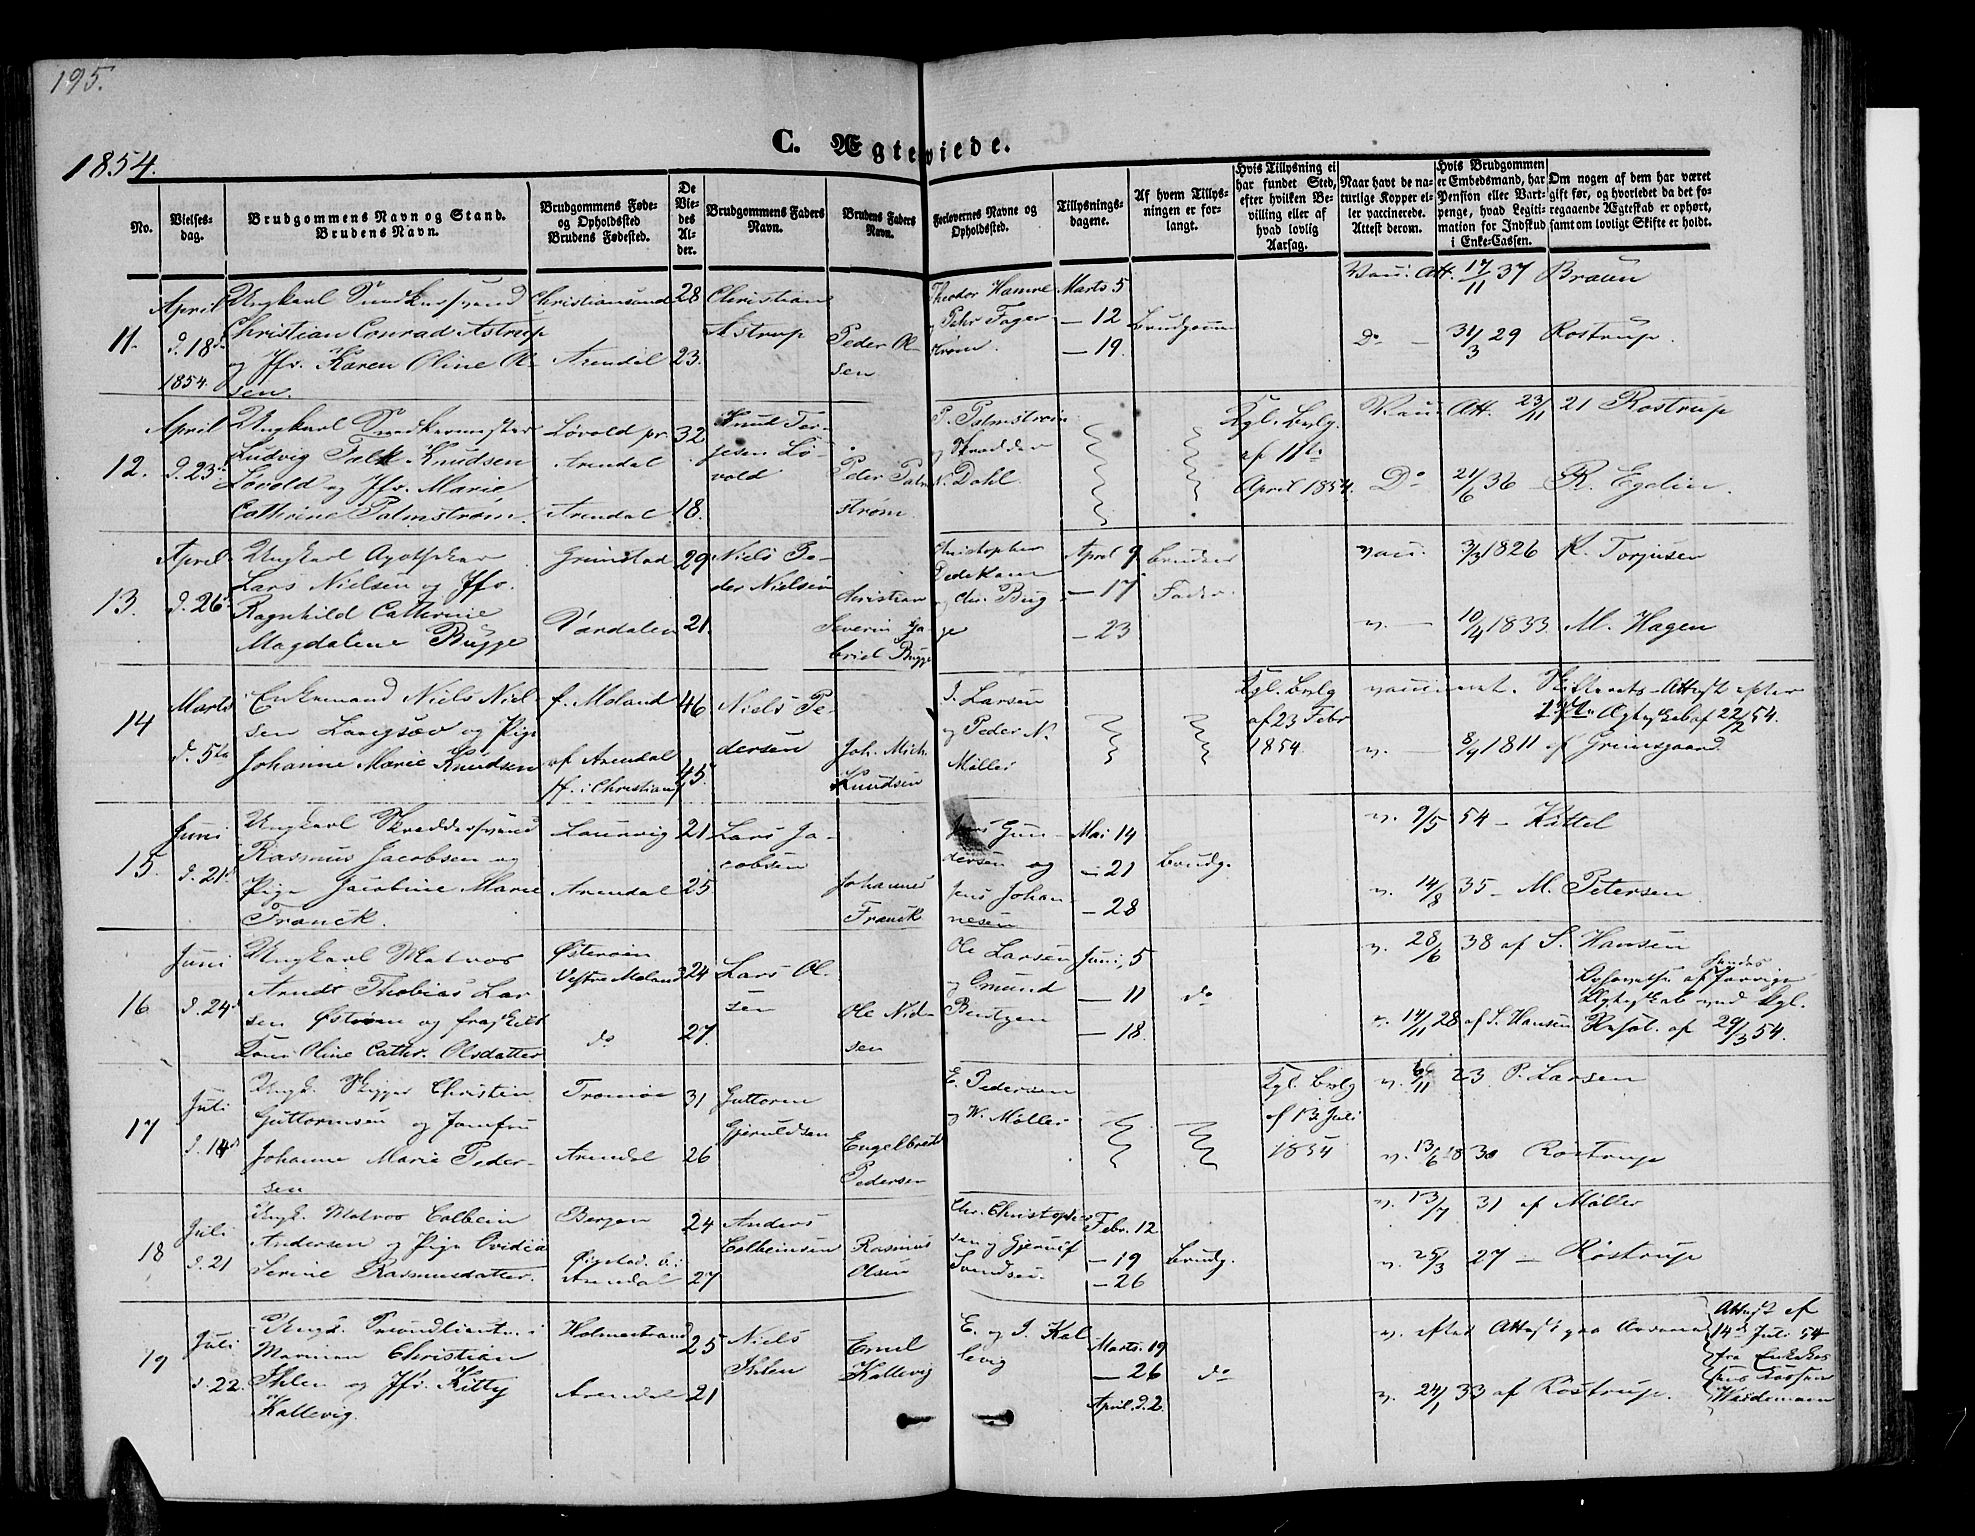 195.
C. Ægteviede.
1854.
No.
Vielses-
dag.
Brudgommens Navn og Stand.
Brudens Navn.
Brudgommens Føde-
og Opholdssted
Brudens Fødested.
De
Vie-
des
Al-
der.
Brudgommens Faders
Navn.
Brudens Faders
Navn.
Forlovernes Navne og
Opholdssted.
Tillysnings-
dagene.
Af hvem Tillys-
ningen er for-
langt.
Hvis Tillysning ei
har fundet Sted,
efter hvilken Be-
villing eller af
hvad lovlig
Aarsag.
Naar havt de na-
turlige Kopper el-
ler vaccinerede.
Attest derom.
Hvis Brudgommen
er Embedsmand, har
Pension eller Vart-
penge, hvad Legiti-
mation for Indskud
i Enke-Cassen.
Om nogen af dem har været
gift før, og hvorledet da det fo-
regaaende Ægteskab er ophørt,
samt om lovligt Skifte er holdt.
11.
April
d. 18d
1854.
Ungkarl Snedkersvend
Christian Conrad Astrup
og Jfr. Karen Oline Ol-
sen.
Christiansund
Arendal
28
23.
Christian
Astrup
Peder Ol-
sen
Theodor Hamre
og Pehr Fager
strøm.
Marts 5
— 12
— 19.
Brudgom
Vacc. Att. 17/11 37 Braun
Do — 31/3 29 Rostrup.
12.
April
d. 23d
Ungkarl Snedkermester
Ludvig Falk Knudsen
Løvold og Jfr. Marie
Cathrine Palmstrøm.
Løvold pr.
Arendal
Arendal
32
18.
Knud Ter-
jesen Lø-
vold
Peder Palm
strøm
P. Palmstrøm
og Skrædder
N. Dahl.
Kgl. Bevlg.
af 11te
April 1854.
Vacc. Att. 23/11 21 Rostrup
Do 21/6 36 — R. Egelien.
13.
April
d. 26d
Ungkarl Apotheker
Lars Nielsen og Jfr.
Ragnhild Cathrine
Magdalene Bugge
Grimstad
Værdalen
29
21.
Niels Pe-
der Nielsen
Christian
Severin Ga-
briel Bugge
Christopher
Dedekam
og Chr. Bug
ge
April 9
— 17
— 23
Brudens
Fader.
vacc. 3/3 1826 K. Torjusen
v. — 10/4 1833. M. Hagen
14
Marts
d. 5te
Enkemand Niels Niel-
sen Langsæv og Pige
Johanne Marie Knudsen
f. Moland
af Arendal
ff. i Christians
46
45.
Niels Pe-
dersen
Joh. Mich.
Knudsen
J. Larsen
og Peder N.
Møller
Kgl. Bevlg
af 23 Febr
1854.
vaccineret. Skifterets-Attest efter
1ste Ægteskab af 22/2 54.
v. — 8/9 1811 af Grimsgaard
15.
Juni
d. 21d
Ungkarl Skræddersvend
Rasmus Jacobsen og
Pige Jacobine Marie
Franck.
Laurvig
Arendal
21
25
Lars Ja-
cobsen
Johannes
Franck
Jens Gun-
dersen og
Jens Johan
nesen
Mai 14
— 21
— 28
Brudg.
v. 9/5 54 — Kittel
v. 14/8 35 — M. Petersen
16
Juni
d. 24d
Ungkarl Matros
Arndt Thobias Lar-
sen Østrøen og fraskilt
Kone Oline Cathr. Olsdatter
Østerøen
Vestre Moland
do
24
27.
Lars Ol-
sen
Ole Niel-
sen
Ole Larsen
og Gmund
Bentzen
Juni, 5
— 11
— 18.
do
v. 28/6 38 af S. Hansen
v. 14/11 28 af S. Hansen
Ægteskab ved Kgl.
Resol. af 29/3 54.
17
Juli
d. 14d
Ungk. Skipper Christen
Guttormsen og Jomfru
Johanne Marie Peder-
sen
Tromøe
Arendal
31
26
Guttorm
Gjeruldsen
Engelbret
Pedersen
E. Pedersen
og W. Møller
Kgl. Bevlg
af 13 Juli
1854
v. 6/11 23 P. Larsen
v. 13/6 1830 Rostrup
18
Juli
d. 21
Ungk. Matros Colbein
Andersen og Pige Ovidia
Serine Rasmusdatter.
Bergen
Øiestad v.
Arendal
24
27
Anders
Colbeinsen
Rasmus
Olsen
Chr. Christophe
sen og Gjerulf
Svendsen.
Febr. 12
— 19
— 26
Brudg.
v. 13/7 31 af Møller
v. 25/3 27 — Rostrup
19
Juli
d. 22.
Ungk. Premierlieutn. i
Marinen Christian
Ihlen og Jfr. Kitty
Kallevig.
Holmestrand
Arendal
25
21
Niels
Ihlen
Emil
Kallevig
E. og J. Kal
levig
Marts. 19
— 26
April. d. 2
do
v. efter Attest
v. 24/1 33 af Rostrup.
Attest af
14d Juli 54
fra Enkekas
Weidemann